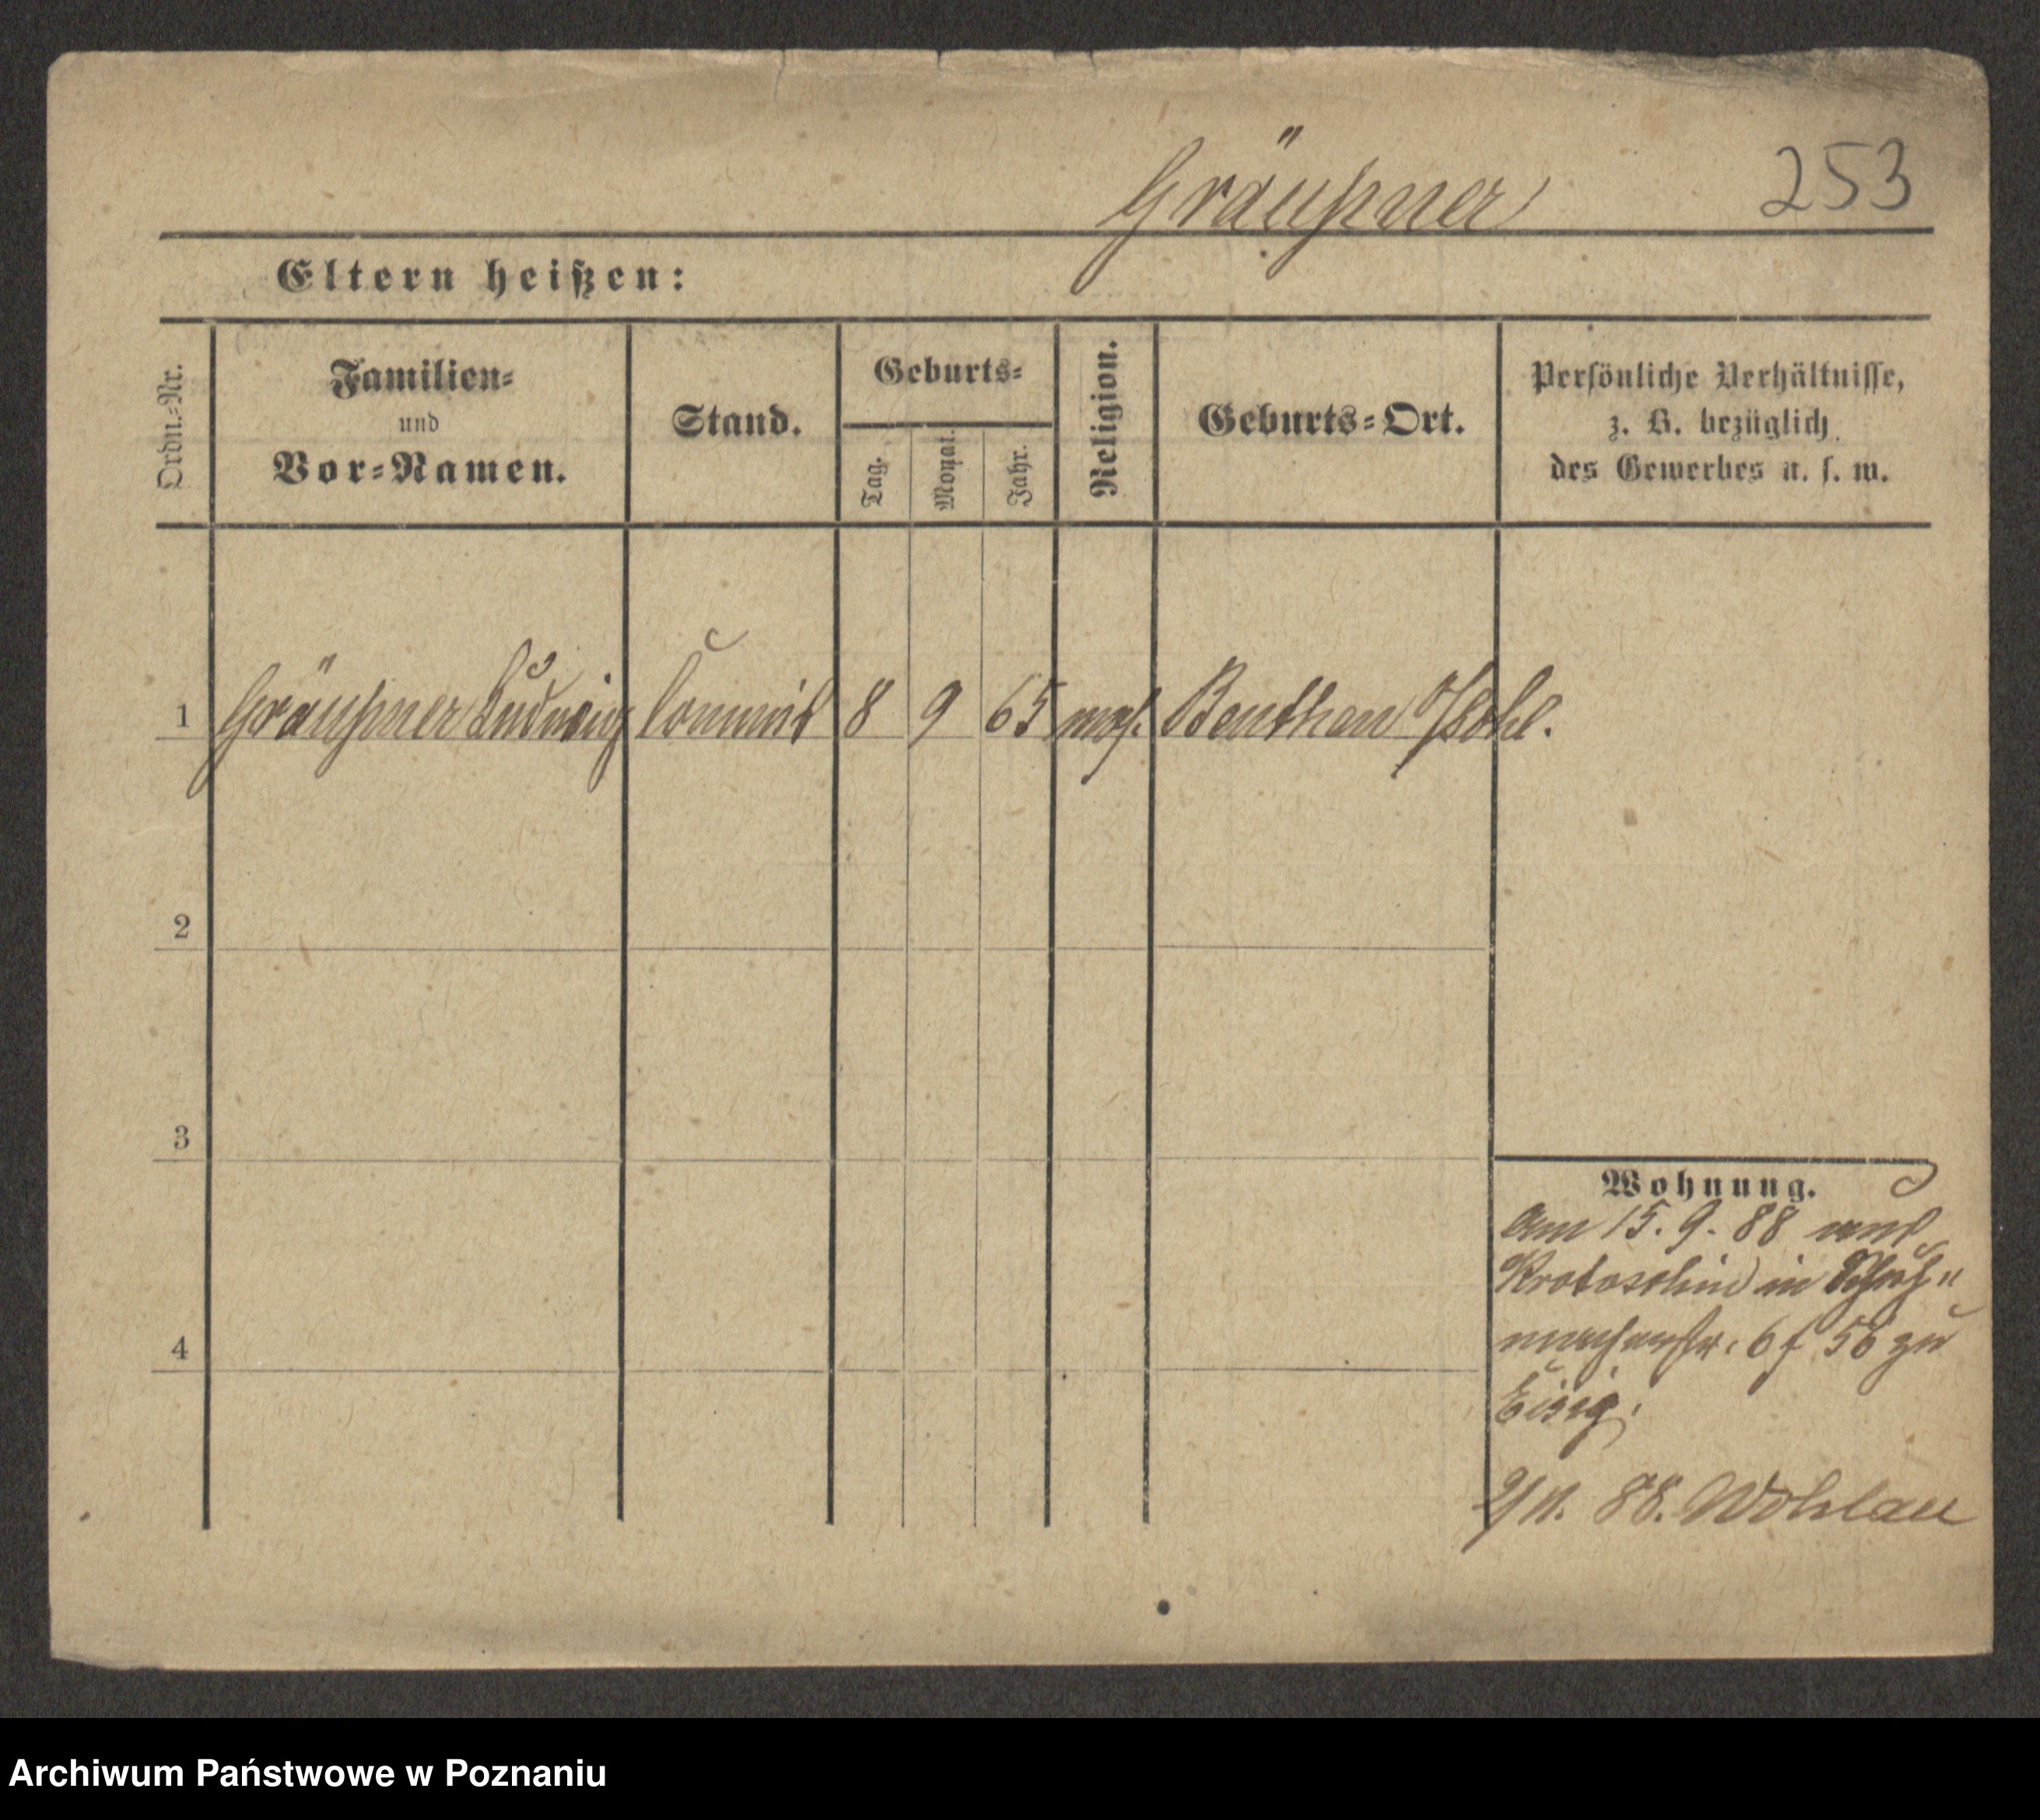 Gräupner
253
Eltern heißen:
Ordn.-Nr.
Familien-
und
Vor-Namen.
Stand.
Geburts-
Tag.
Monat.
Jahr.
Religion.
Geburts-Ort.
Persönliche Verhältnisse,
z. B. bezüglich
des Gewerbes u. s. w.
1 Gräupner Ludwig Commis 8 9 65 mos. Beuthen
2
3
4
Wohnung.
Am 15. 9. 88 aus
Krotoschin in Schuh-
macherstr. 6 f 56 zu
Eisig.
2/11. 88. Wohlau
Archiwum Państwowe w Poznaniu